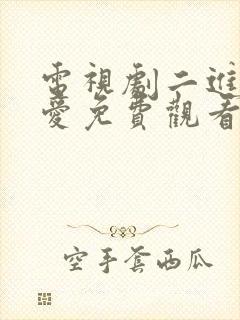 電視劇二進
愛免費觀看
空手套西瓜